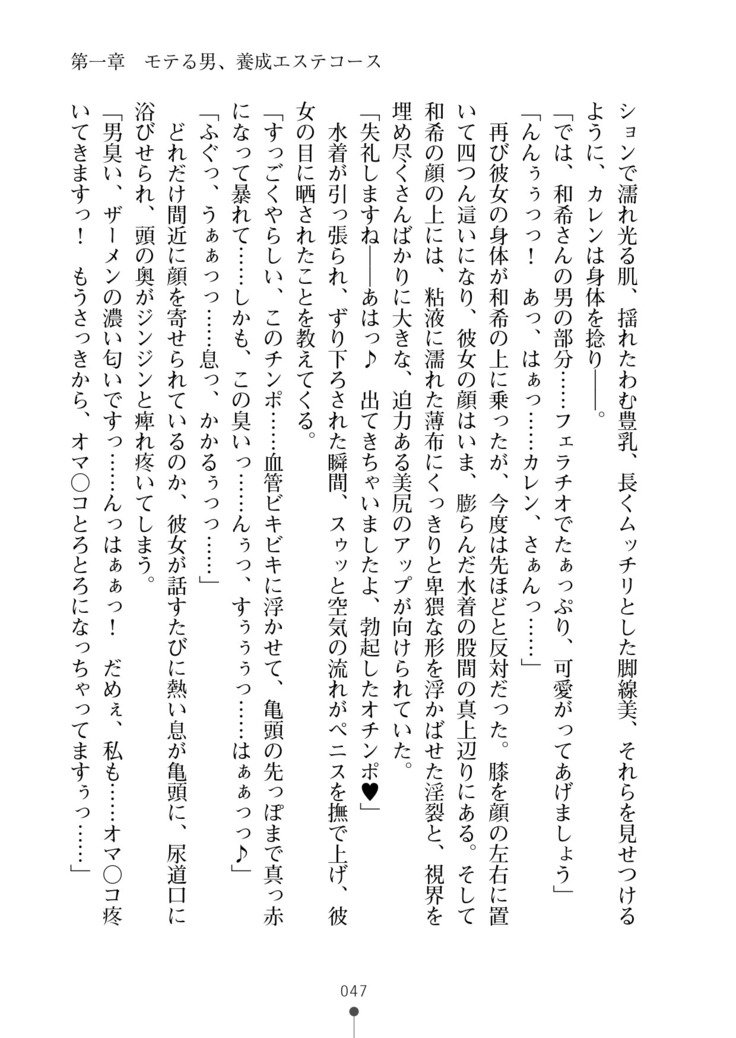 第一章　モテる男、養成エステコース
ションで濡れ光る肌、揺れたわむ豊乳、長くムッチリとした脚線美、それらを見せつける
ように、カレンは身体を捻り――。
「では、和希さんの男の部分……フェラチオでたぁっぷり、可愛がってあげましょう」
「んんぅぅっっ！　あっ、はぁっ……カレン、さぁんっ……」
　再び彼女の身体が和希の上に乗ったが、今度は先ほどと反対だった。膝を顔の左右に置
いて四つん這いになり、彼女の顔はいま、膨らんだ水着の股間の真上辺りにある。そして
和希の顔の上には、粘液に濡れた薄布にくっきりと卑猥な形を浮かばせた淫裂と、視界を
埋め尽くさんばかりに大きな、迫力ある美尻のアップが向けられていた。
「失礼しますね――あはっ♪　出てきちゃいましたよ、勃起したオチンポ♥」
　水着が引っ張られ、ずり下ろされた瞬間、スゥッと空気の流れがペニスを撫で上げ、彼
女の目に晒されたことを教えてくる。
「すっごくやらしい、このチンポ……血管ビキビキに浮かせて、亀頭の先っぽまで真っ赤
になって暴れて……しかも、この臭いっ……んぅっ、すぅぅぅっ……はぁぁっっ♪」
「ふぐっ、うぁぁっっ……息っ、かかるぅっっ……」
　どれだけ間近に顔を寄せられているのか、彼女が話すたびに熱い息が亀頭に、尿道口に
浴びせられ、頭の奥がジンジンと痺れ疼いてしまう。
「男臭い、ザーメンの濃い匂いですっ……んっはぁぁっ！　だめぇ、私も……オマ〇コ疼
いてきますっ！　もうさっきから、オマ〇コとろとろになっちゃってますぅっ……」
047